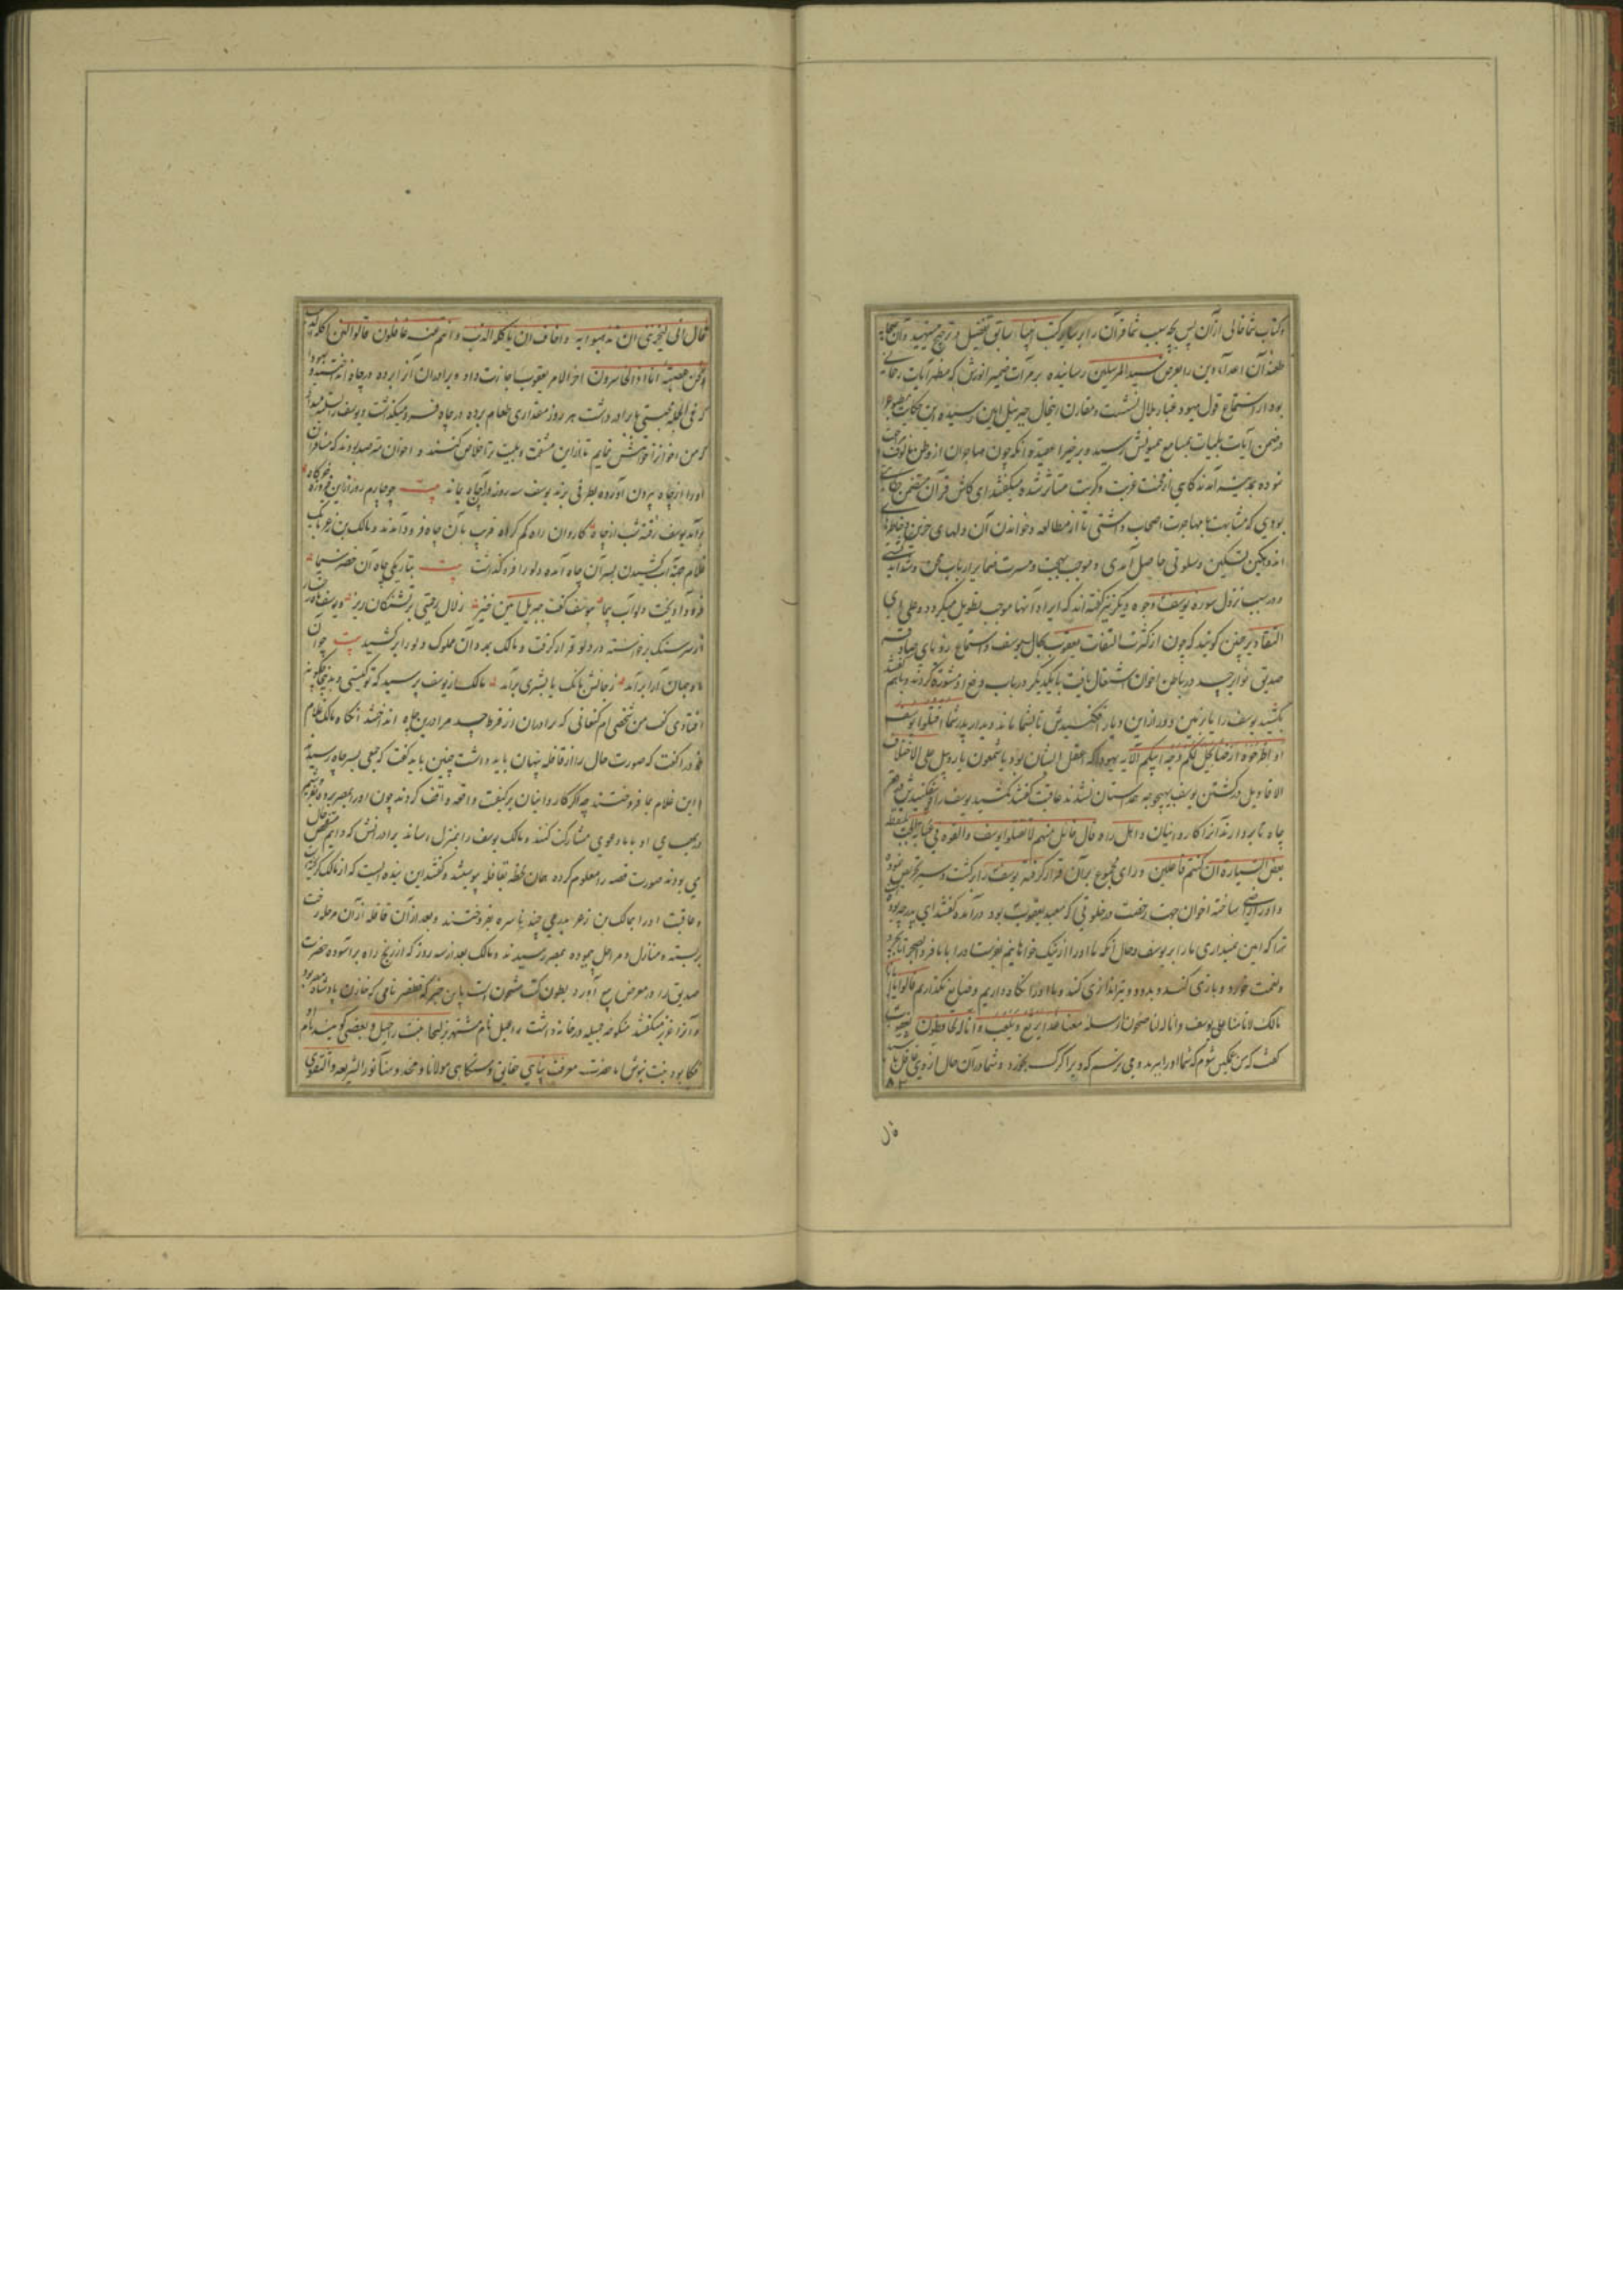 و کتاب شما خالی ازآن پس بچه سبب شما قرآن را بر سایر کتب انبیا سابق تفضیل و ترجیح مینهید وآن صحابه
طعنه آن اعدا دین را بعرض سید المرسلین رسانیده بر مرآت ضمیر انورش که مظهر آیات رحمانی
بود از استماع قول یهود غبار ملال نشست و مقارن اینحال جبرئیل امین رسیده این حکایت
در ضمن آیات بینات بمسامع همیونش رسیده و برخی را عقیده آنکه چون مهاجران از وطن مألوف
نموده بمدینه آمدند گاهی از محنت غربت و کربت متأثر شده میگفتند ای کاش قرآن متضمن
بودی که مشابهت بمهاجرت اصحاب داشتی تا از مطالعه و خواندن آن دلهای حزین
اندوهگین تسکین و سلوتی حاصل آمدی و موجب بهجت و مسرت ارباب محن و شداید
و در سبب نزول سوره یوسف وجوه دیگر نیز گفته اند که ایراد آنها موجب تطویل میگردد علی ای
التقادیر چنین گویند که چون از کثرت التفات یعقوب بحال یوسف و استماع رؤیای صادقه
صدیق نوایر حسد در باطن اخوان اشتعال یافت با یکدیگر در باب دفع او مشورة کردند و باهم گفتند
بکشید یوسف را یا زمین دور از این دیار افکنیدش تا بشما ماند دیدار پدر شما اقتلوا یوسف
او اطرحوه ارضا یخل لکم وجه ابیکم الآیه یهودا که اعقل ایشان بود یا شمعون یا روبیل علی الاختلاف
الاقاویل در کشتن یوسف بهیچوجه همداستان نشدند عاقبت گفتند مکشید یوسف را و بیفکنیدش در قعر
چاه تا بردارند آنرا کاروانیان و اهل راه قال قائل منهم لا تقتلوا یوسف و القوه فی غیابة الجب یلتقطه
بعض السیارة ان کنتم فاعلین و رای مجموع بر آن قرار گرفته یوسف را بر گشت و سیر تحریص نموده
و او را راضی ساخته اخوان جهت رخصت در خلوتی که معبد یعقوب بود درآمده گفتند ای پدر چه بوده
ترا که امین نمیداری ما را بر یوسف و حال آنکه ما او را از نیک خواهانیم بفرست او را با ما فردا بصحرا
و نعمت خورد و بازی کند و بدود و تیراندازی کند و ما او را نگاه داریم و ضایع نگذاریم قالوا یا ابانا
مالک لا تأمنا علی یوسف و انا له لناصحون ارسله معنا غدا یرتع و یلعب و انا له لحافظون یعقوب
گفت که من غمگین شوم که شما او را ببرید و می ترسم که ویرا گرگ بخورد و شما در آن حال از وی غافل باشید
۸۲
قال
قال انی لیحزننی ان تذهبوا به و اخاف ان یأکله الذئب و انتم عنه غافلون قالوا لئن اکله الذئب
و نحن عصبة انا اذا لخاسرون آخر الامر یعقوب اجازت داد و برادران آنرا برده در چاه انداختند و یهودا
که فی الجمله محبتی با برادر داشت هر روز مقداری طعام برده در چاه فرو میگذاشت و یوسف را تسلی میداد
که من اخوانرا خواهش نمایم تا از این مشقت و بلیت ترا خلاص کنند و اخوان مترصد بودند که مسافران
او را از چاه بیرون آورده بطرفی برند یوسف سه روز در آن چاه بماند بیت چو چارم روز ازین فیروزه خرگاه
برآمد یوسف رفته شب از چاه کاروان راه گم کرده قریب بآن چاه فرود آمدند و مالک بن زعر یک
غلام جهة آب کشیدن بسر آن چاه آمده دلو را فرو گذاشت بیت بتاریکی چاه آن خضر سیما
فرود آویخت دلو آب پیما بیوسف گفت جبریل امین خیز زلال رحمتی بر تشنگان ریز و یوسف
از سر سنگ برخواسته در دلو قرار گرفت و مالک بمدد آن ملوک دلو را برکشید بیت چو آن
ماه جهان آرا برآمد ز جانش بانگ یا بشری برآمد مالک از یوسف پرسید که تو کیستی و بدینجا چگونه
افتادی گفت من شخصی ام کنعانی که برادران از فرط حسد مرا در این چاه انداختند آنگاه مالک غلام
خود را گفت که صورت حال را از قافله پنهان باید داشت چنین باید گفت که جمعی بسر چاه رسیده
این غلام بما فروختند چه اگر کاروانیان بر کیفیت واقعه واقف گردند چون او را بمصر برده بفروشیم
در بهای او با ما دعوی مشارکت کنند و مالک یوسف را بمنزل رساند برادرانش که دایم متفحص حال
می بودند صورت قصه را معلوم کرده همان لحظه بقافله پیوستند و گفتند این بنده ایست که از مالک گریخته
و عاقبت او را بمالک بن زعر بدرهمی چند ناسره بفروختند و بعد از آن قافله از آن مرحله رخت
بربسته منازل و مراحل پیموده بمصر رسیدند و مالک بعد از سه روز که از رنج راه برآسوده حضرت
صدیق را در معرض بیع آورد بطون کتب مشحونست باین خبر که قطفیر نامی که خازن پادشاه مصر بود
و آنرا عزیز میگفتند منکوحه جمیله در خانه داشت راعیل نام مشتهر بزلیخا بنت راعیل و بعضی گویند نام